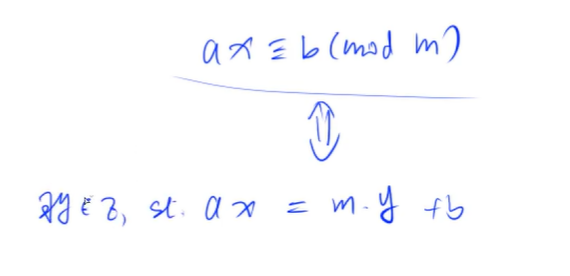 ax ≡ b (mod m)
⇕
∃y ∈ ℤ, st. ax = m·y + b